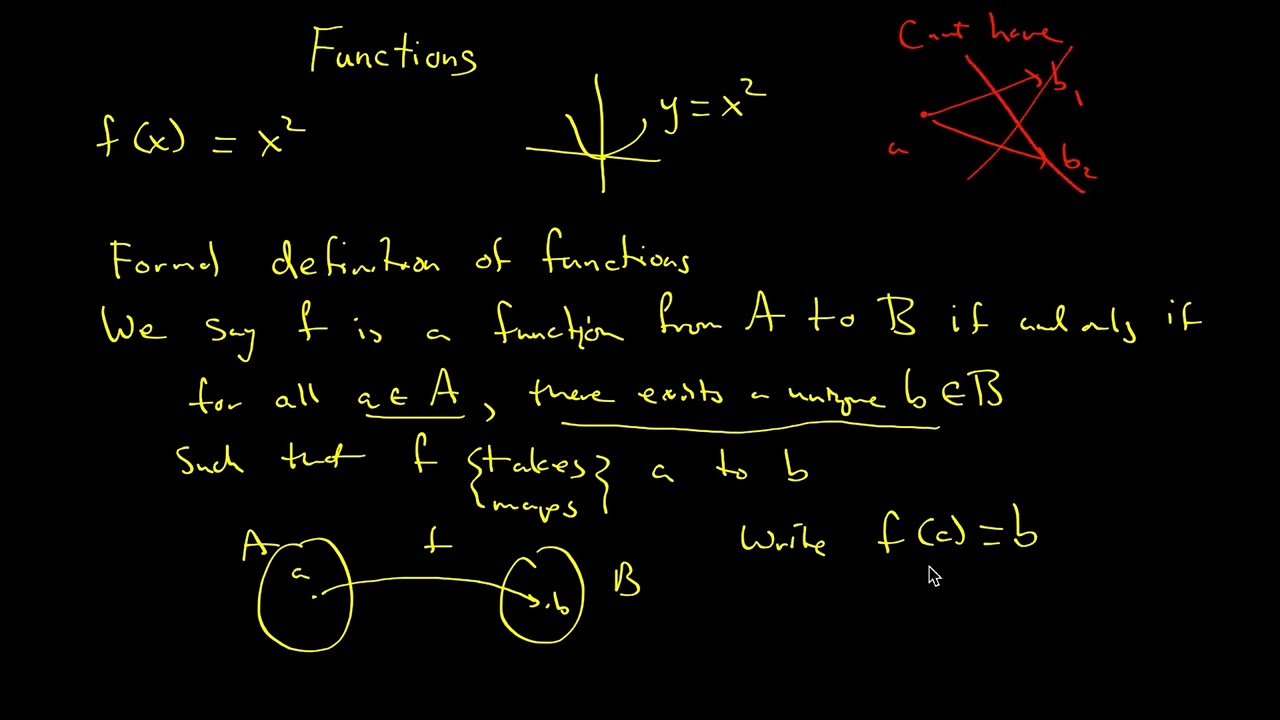 Functions
f(x) = x²
y = x²
Can't have
a
b₁
b₂
Formal definition of functions
We say f is a function from A to B if and only if
for all a ∈ A, there exists a unique b ∈ B
Such that f {takes maps} a to b
Write f(a) = b
A
f
B
a
b